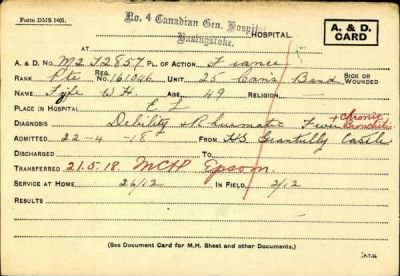 Form DMS 1401.
No. 4 Canadian Gen. Hospital
Basingstoke.
A. & D.
CARD
AT HOSPITAL.
A. & D. No. M2 J2857 PL. OF ACTION France
RANK Pte REG. No. 161046 UNIT 25 Cans Band SICK OR WOUNDED
NAME Fyfe W. H. AGE 49 RELIGION
PLACE IN HOSPITAL
DIAGNOSIS Debility & Rheumatic Fever + Chronic Bronchitis
ADMITTED 22-4-18 FROM HS Grantully Castle
DISCHARGED TO
TRANSFERRED 21.5.18 MCH Epsom.
SERVICE AT HOME 26/12 IN FIELD 2/12
RESULTS
(See Document Card for M.H. Sheet and other Documents.)